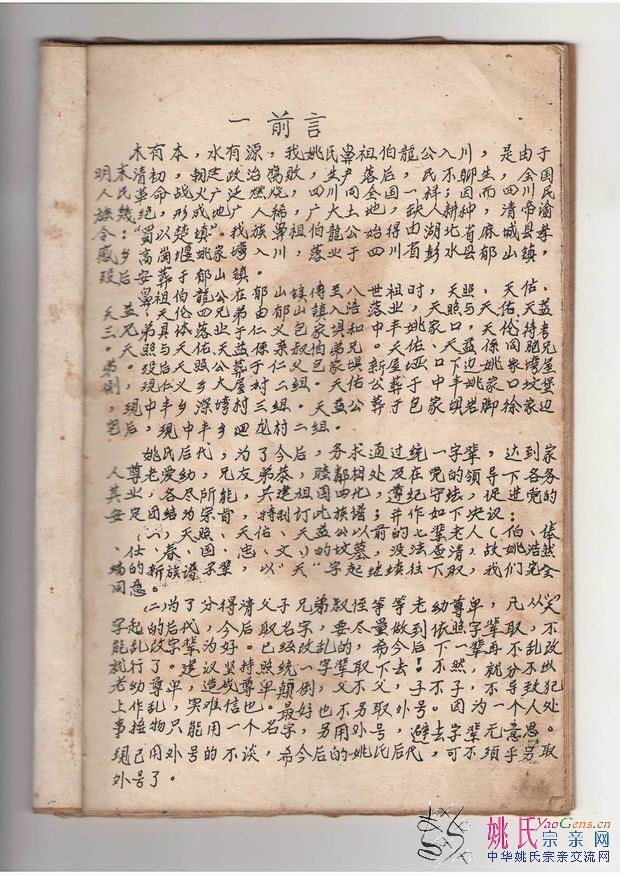 一 前言
木有本，水有源，我姚氏鼻祖伯龍公入川，是由于
明末清初，朝廷政治腐败，生产落后，民不聊生，全国
人民革命战火广泛燃烧，四川同全国一样；因而四川
族几绝，形成地广人稀，广大土地，缺人耕种，清帝渝
令："蜀以楚填"。我族鼻祖伯龍公始得由湖北省麻城县孝
感乡高崗堰姚家塆入川，落业于四川省彭水县郁山镇，
殁后安葬于郁山镇。
鼻祖伯龍公在郁山镇傳至八世祖时，天照、天佑、
天益、天伦四兄弟由郁山镇入涪落业，天照与天佑、天益
三兄弟具体落业于仁义包家垻和中丰姚家口，天伦待考
。天照与天佑、天益係亲叔伯弟兄。天佑、天益係同胞兄
弟。殁后天照公葬于仁义包家垻新屋垭口下边姚家塆屋
侧，现仁义乡大屋村二组。天佑公葬于中丰姚家口坟堡
，现中丰乡深塆村三组。天益公葬于包家垻岩脚徐家边
宅后，现中丰乡迴龙村二组。
姚氏后代，为了今后，务求通过统一字辈，达到家
人尊老爱幼，兄友弟恭，睦鄰相处及在党的领导下各务
其业，各尽所能，共建祖国四化，遵纪守法，促进党的
安定团结为宗旨，特制订此族谱；并作如下决议：
(一)、天照、天佑、天益公以前的七辈老人(伯、
、仕、春、国、忠、文)的坟墓，没法查清，故姚浩然
编的新族谱字辈，以"天"字起继续往下取，我们完全
同意。
(二)为了分得清父子兄弟叔侄等等老幼尊卑，凡以"天"
字起的后代，今后取名字，要尽量做到依照字辈取，不
能乱改字辈为好。已经改乱的，希今后下一辈再不乱改
就行了。建议坚持照统一字辈取下去！不然，就分不出
老幼尊卑，造成尊卑颠倒，父不父，子不子，不导致犯
上作乱，实难信也。最好也不另取外号。因为一个人处
事接物只能用一个名字，另用外号，避去字辈无意思。
现已用外号的不谈，希今后的姚氏后代，可不须乎另取
外号了。
姚氏宗亲网
YaoGens.cn
中华姚氏宗亲交流网